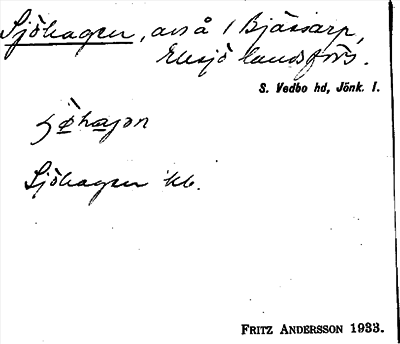 Sjöhagen, avs å 1 Bjässarp,
Eksjö landsförs.
S. Vedbo hd, Jönk. l.
Sjöhagen kb.
FRITZ ANDERSSON 1933.